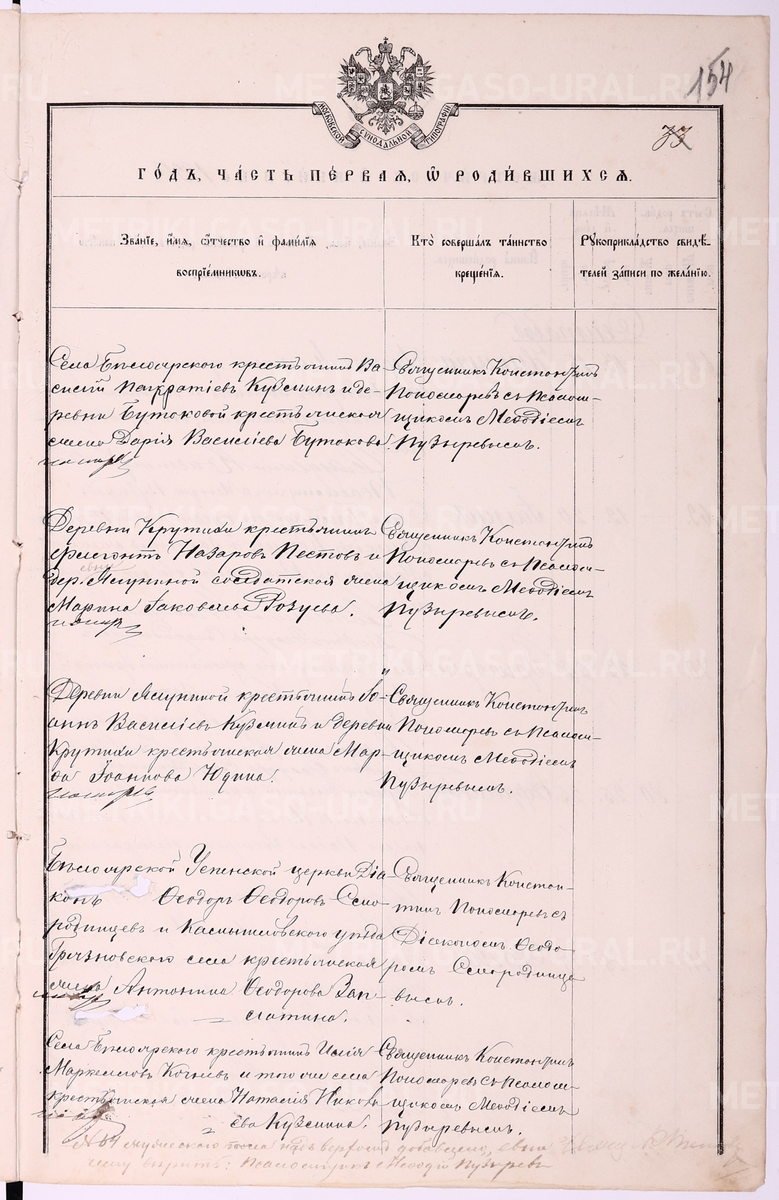 154
33
МОСКОВСКОЙ СѴНОДАЛЬНОЙ ТИПОГРАФІИ
ГО́ДЪ, ЧА́СТЬ ПЕ́РВАЯ, Ѡ҆ РОДИ́ВШИХСЯ.
Зва́нїе, и҆́мя, ѻ҆́тчество и҆ фами́лїя
воспрїе́мникѡвъ.
Кто̀ соверша́лъ та́инство
креще́нїя.
Рꙋкоприкла́дство свидѣ́-
телей за́писи по жела́нїю.
Села Бѣлоярского крестьянинъ Ва-
силій Панкратіевъ Кузминъ и де-
ревни Бутаковой крестьянская
жена Дарія Василіева Бутакова
Священникъ Константинъ
Пономаревъ съ Псалом-
щикомъ Меѳодіемъ
Пузыревымъ.
Деревни Крутихи крестьянинъ
Флегонтъ Назаровъ Пестовъ и
дер. Ялуниной солдатская жена
Марина Іаковлева
Священникъ Константинъ
Пономаревъ съ Псалом-
щикомъ Меѳодіемъ
Пузыревымъ.
Деревни Ялуниной крестьянинъ Іо-
аннъ Василіевъ Кузминъ и деревни
Крутихи крестьянская жена Мар-
ѳа Іоаннова Юдина.
Священникъ Константинъ
Пономаревъ съ Псалом-
щикомъ Меѳодіемъ
Пузыревымъ.
Бѣлоярской Успенской церкви Діа-
конъ Ѳеодоръ Ѳеодоровъ Смо-
родинцевъ и Камышловского уѣзда
Грязновского села крестьянская
жена Антонина Ѳеодорова Зап-
латина.
Священникъ Констан-
тинъ Пономаревъ съ
Діакономъ Ѳеодо-
ромъ Смородинце-
вымъ.
Села Бѣлоярского крестьянинъ
Маркеловъ и того же села
крестьянская жена Наталія
Кузмина.
Священникъ Константинъ
Пономаревъ съ Псалом-
щикомъ Меѳодіемъ
Пузыревымъ.
мужеского пола
вѣрить: Псаломщикъ Меѳодій Пузыревъ